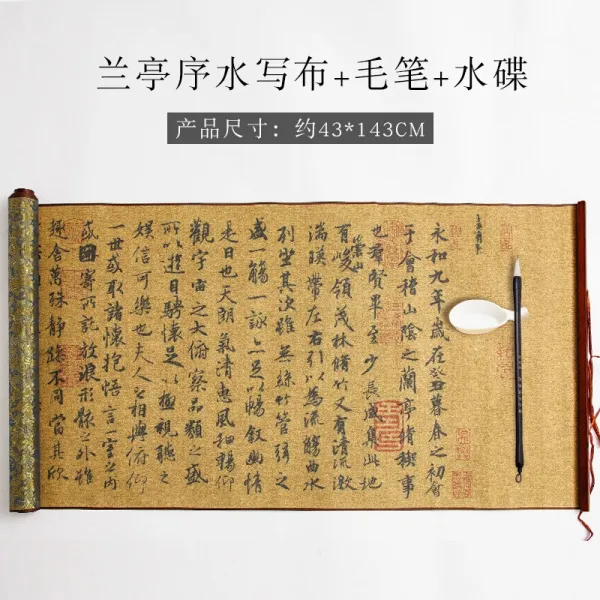 兰亭序水写布+毛笔+水碟
产品尺寸：约43*143CM
永和九年歲在癸丑暮春之初會
于會稽山陰之蘭亭脩稧事
也羣賢畢至少長咸集此地
有崇山峻領茂林脩竹又有清流激
湍暎帶左右引以為流觴曲水
列坐其次雖無絲竹管弦之
盛一觴一詠亦足以暢敘幽情
是日也天朗氣清惠風和暢仰
觀宇宙之大俯察品類之盛
所以遊目騁懷足以極視聽之
娛信可樂也夫人之相與俯仰
一世或取諸懷抱悟言一室之內
或因寄所託放浪形骸之外雖
趣舍萬殊靜躁不同當其欣